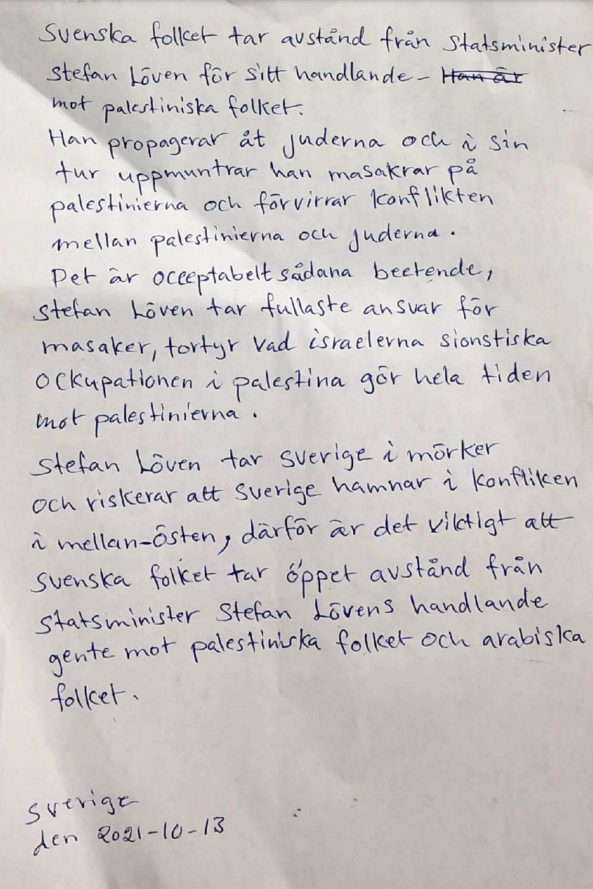 Svenska folket tar avstånd från Statsminister
Stefan Löven för sitt handlande - Han är
mot palestiniska folket.
Han propagerar åt juderna och i sin
tur uppmuntrar han masakrar på
palestinierna och förvirrar konflikten
mellan palestinierna och juderna.
Det är occeptabelt sådana beetende,
Stefan Löven tar fullaste ansvar för
masaker, tortyr vad israelerna sionstiska
ockupationen i palestina gör hela tiden
mot palestinierna.
Stefan Löven tar sverige i mörker
och riskerar att sverige hamnar i konfliken
i mellan-östen, därför är det viktigt att
svenska folket tar öppet avstånd från
statsminister Stefan Lövens handlande
gente mot palestiniska folket och arabiska
folket.
sverige
den 2021-10-13